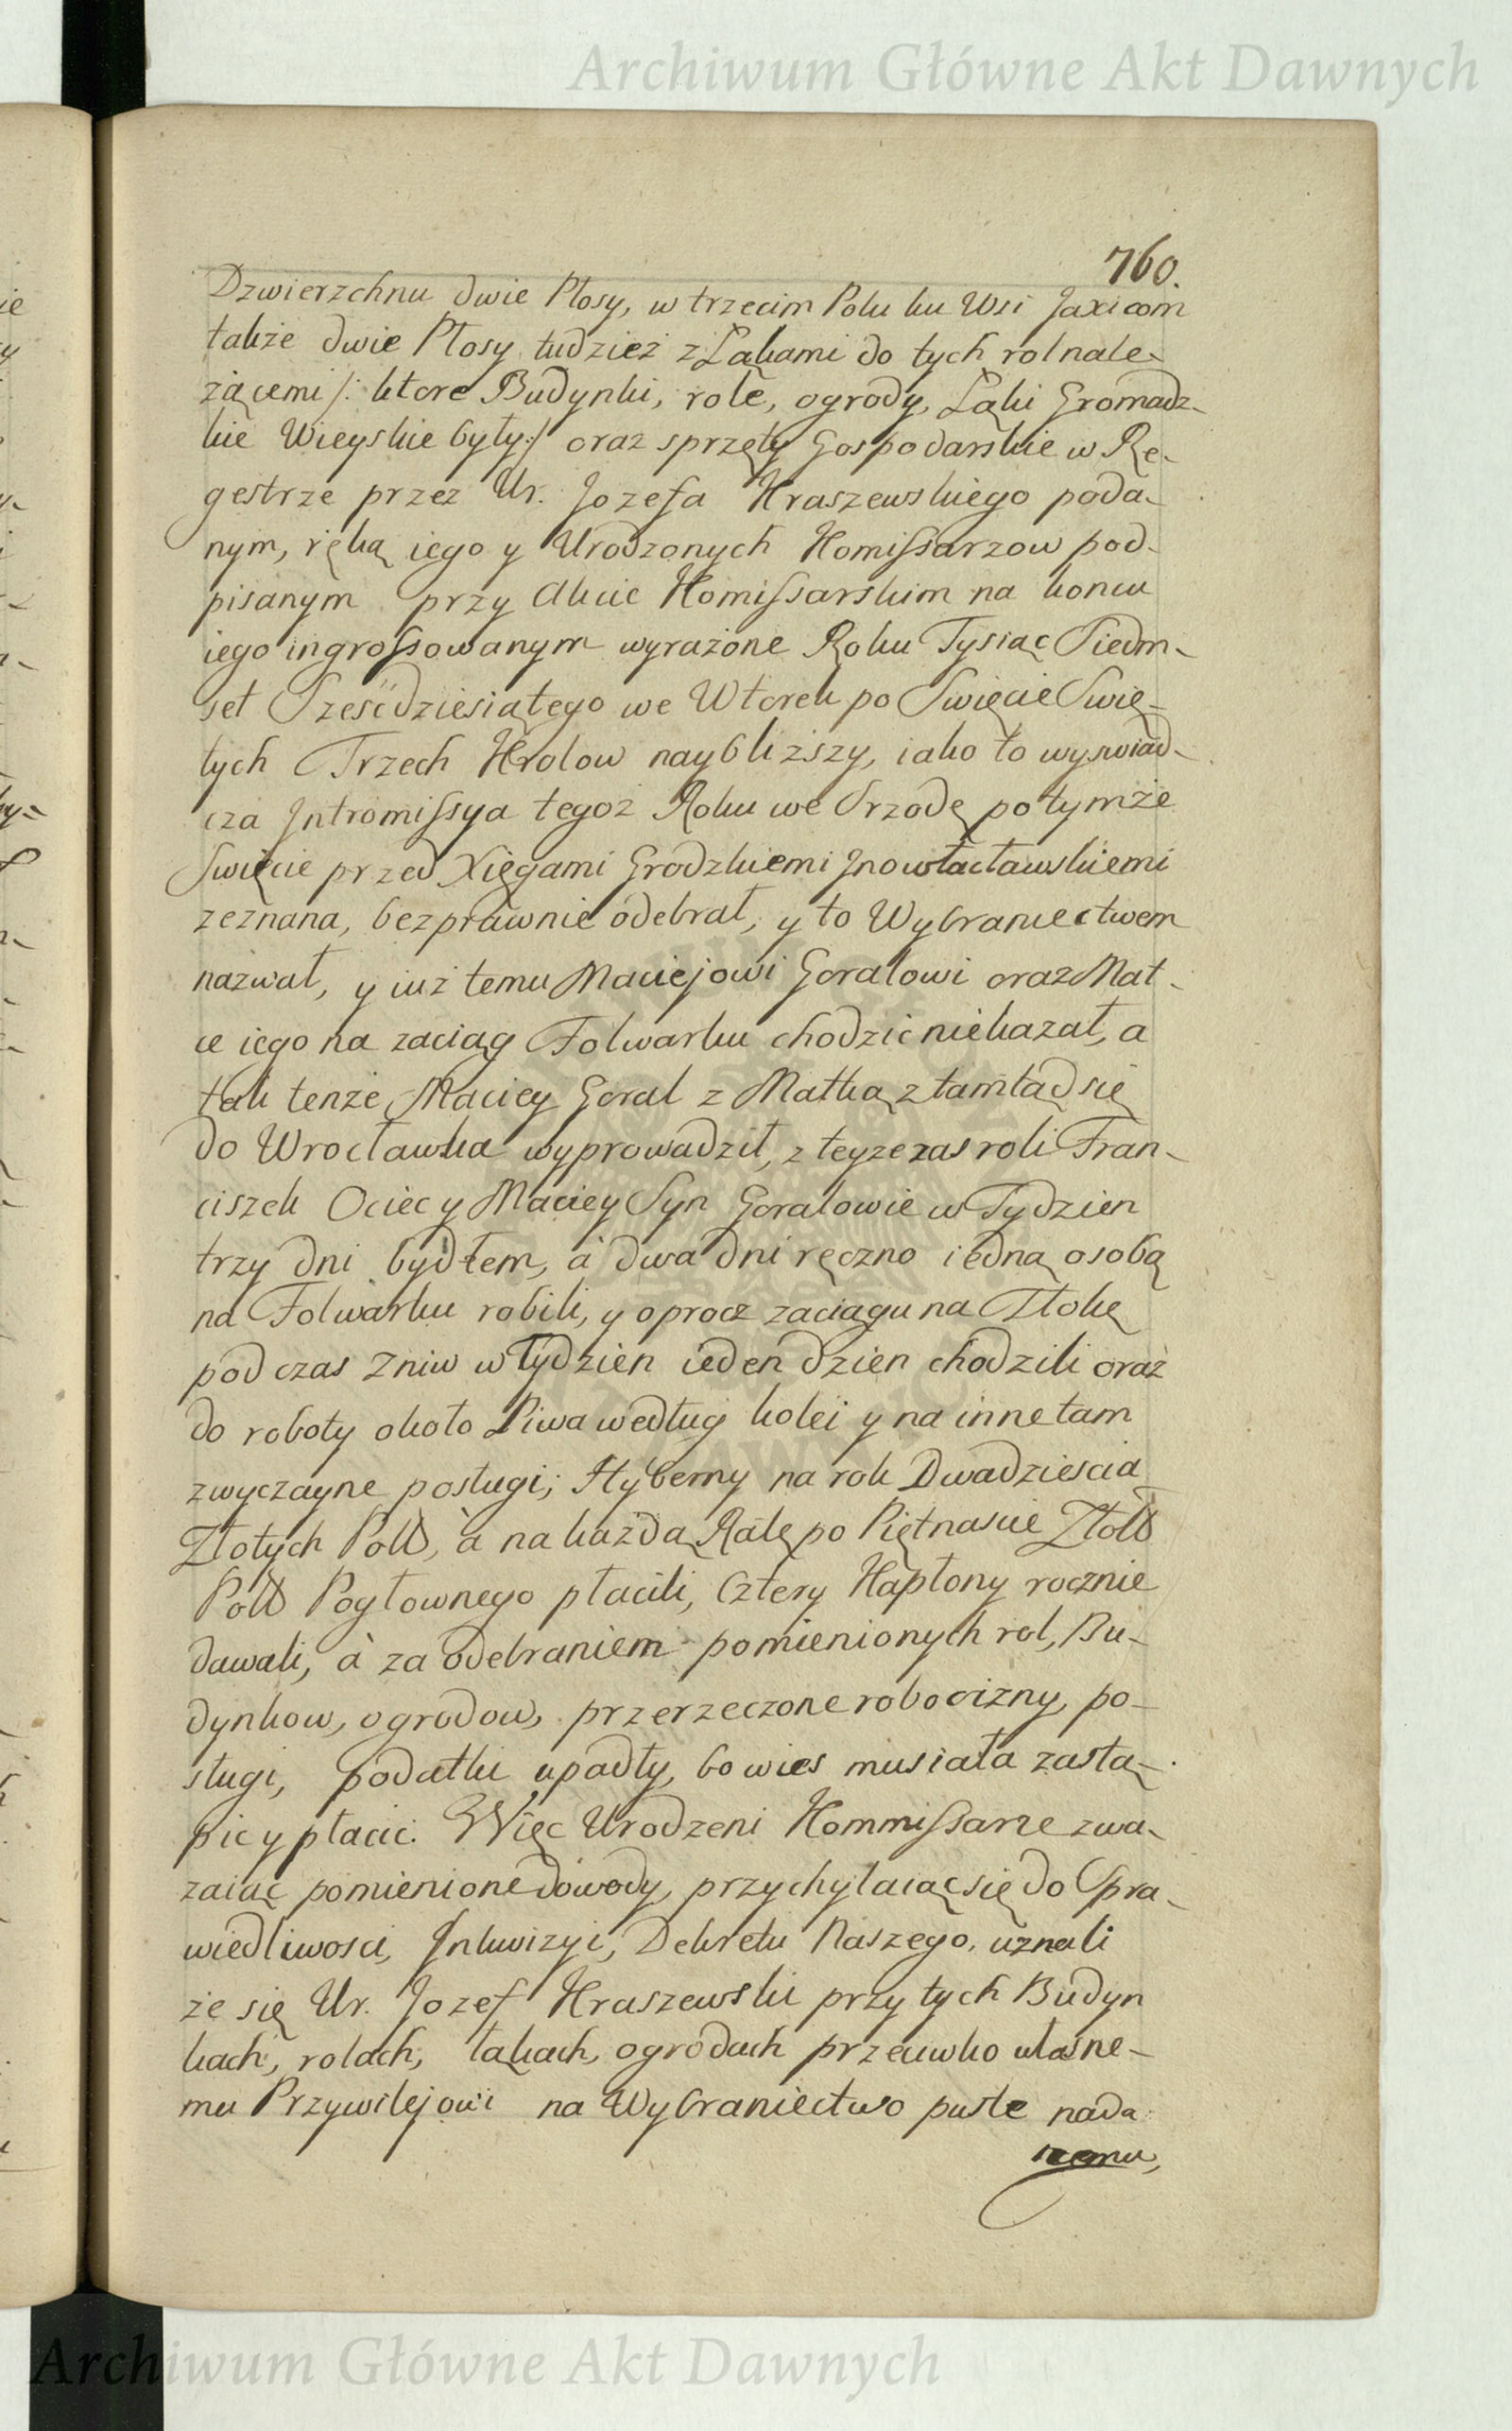 Archiwum Główne Akt Dawnych
760.
Dzwierzchnu dwie Płosy, w trzecim Polu ku Wsi Jaxicom
także dwie Płosy tudzież z Łąkami do tych rol nale-
żącemi /: ktore Budynki, role, ogrody, Łąki Gromadz-
kie Wieyskie były :/ oraz sprzęty Gospodarskie w Re-
gestrze przez Ur. Jozefa Kraszewskiego poda-
nym, ręką iego y Urodzonych Komissarzow pod-
pisanym przy Akcie Komissarskim na koncu
iego ingrossowanym wyrażone Roku Tysiąc Siedm-
set Sześćdziesiątego we Wtorek po Swięcie Swię-
tych Trzech Krolow naybliższy, iako to wyswiad-
cza Intromissya tegoż Roku we Srzodę po tymże
Swięcie przed Xięgami Grodzkiemi Inowłacławskiemi
zeznana, bezprawnie odebrał, y to Wybraniectwem
nazwał, y iuż temu Maciejowi Goralowi oraz Mat-
ce iego na zaciąg Folwarku chodzic niekazał, a
tak tenże Maciey Goral z Matką z tamtąd się
do Wrocławka wyprowadził, z teyże zas roli Fran-
ciszek Ociec y Maciey Syn Goralowie w Tydzien
trzy dni bydłem, a dwa dni ręczno iedną osobą
na Folwarku robili, y oprocz zaciągu na Tłokę
podczas Zniw w Tydzien ieden dzien chodzili oraz
do roboty około Piwa według kolei y na inne tam
zwyczayne posługi; Hyberny na rok Dwadziescia
Złotych Poll, a na każdą Ratę po Piętnascie Złoll
Poll Pogłownego płacili, Cztery Kapłony rocznie
dawali, a za odebraniem pomienionych rol, Bu-
dynkow, ogrodow, przerzeczone robocizny, po-
sługi, podatki upadły, bo wies musiała zastą-
pic y płacic. Więc Urodzeni Kommissarze zwa-
zaiąc pomienione dowody, przychylaiąc się do Spra-
wiedliwosci, Inkwizyi, Dekretu Naszego, uznali
że się Ur. Jozef Kraszewski przy tych Budyn
kach, rolach, łąkach, ogrodach przeciwko własne-
mu Przywilejowi na Wybraniectwo puste nada
nemu,
Archiwum Główne Akt Dawnych